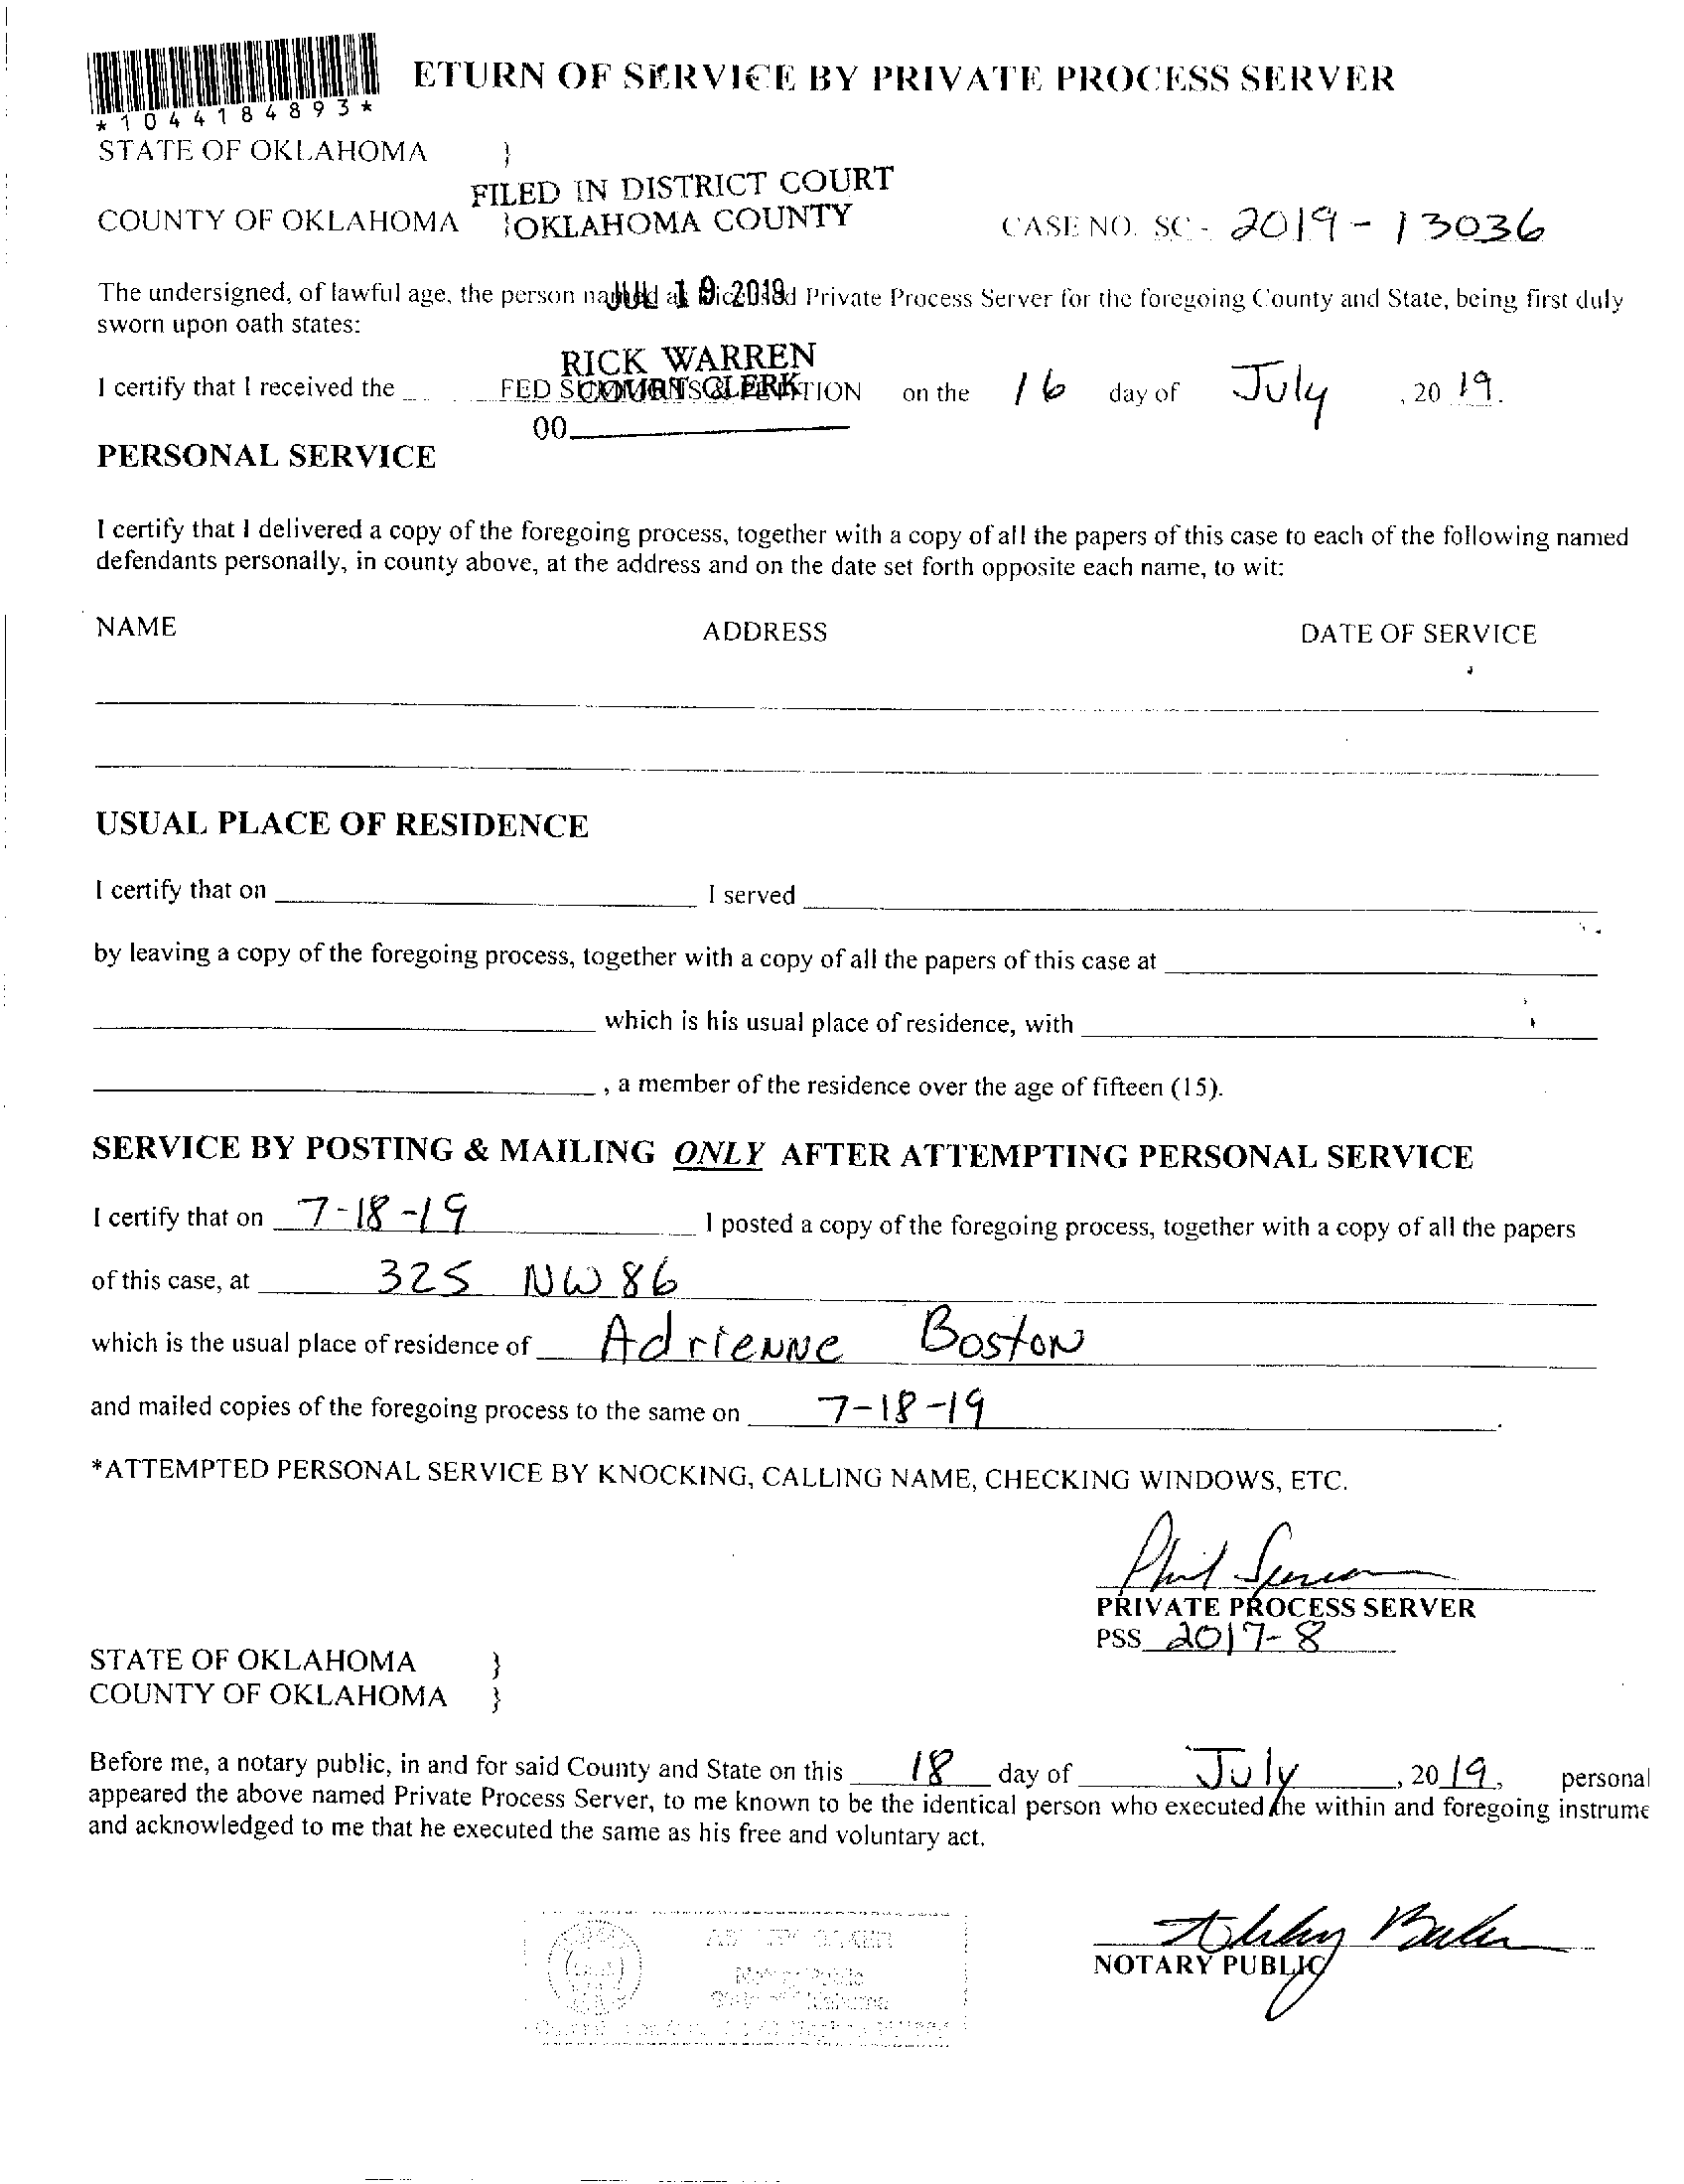 ETURN OF SERVICE BY PRIVATE PROCESS SERVER
*1044184893*
STATE OF OKLAHOMA }
FILED IN DISTRICT COURT
COUNTY OF OKLAHOMA }OKLAHOMA COUNTY CASE NO. SC - 2019 - 13036
JUL 19 2019
The undersigned, of lawful age, the person named as licensed Private Process Server for the foregoing County and State, being first duly
sworn upon oath states:
RICK WARREN
COURT CLERK
I certify that I received the FED SUMMONS & PETITION on the 16 day of July , 20 19.
00
PERSONAL SERVICE
I certify that I delivered a copy of the foregoing process, together with a copy of all the papers of this case to each of the following named
defendants personally, in county above, at the address and on the date set forth opposite each name, to wit:
NAME ADDRESS DATE OF SERVICE
USUAL PLACE OF RESIDENCE
I certify that on I served
by leaving a copy of the foregoing process, together with a copy of all the papers of this case at
which is his usual place of residence, with
, a member of the residence over the age of fifteen (15).
SERVICE BY POSTING & MAILING ONLY AFTER ATTEMPTING PERSONAL SERVICE
I certify that on 7-18-19 I posted a copy of the foregoing process, together with a copy of all the papers
of this case, at 325 NW 86
which is the usual place of residence of Adrienne Boston
and mailed copies of the foregoing process to the same on 7-18-19.
*ATTEMPTED PERSONAL SERVICE BY KNOCKING, CALLING NAME, CHECKING WINDOWS, ETC.
Phil
PRIVATE PROCESS SERVER
PSS 2017-8
STATE OF OKLAHOMA }
COUNTY OF OKLAHOMA }
Before me, a notary public, in and for said County and State on this 18 day of July, 20 19, personal
appeared the above named Private Process Server, to me known to be the identical person who executed the within and foregoing instrume
and acknowledged to me that he executed the same as his free and voluntary act.
Ashley Baker
NOTARY PUBLIC
Notary Public
State of Oklahoma